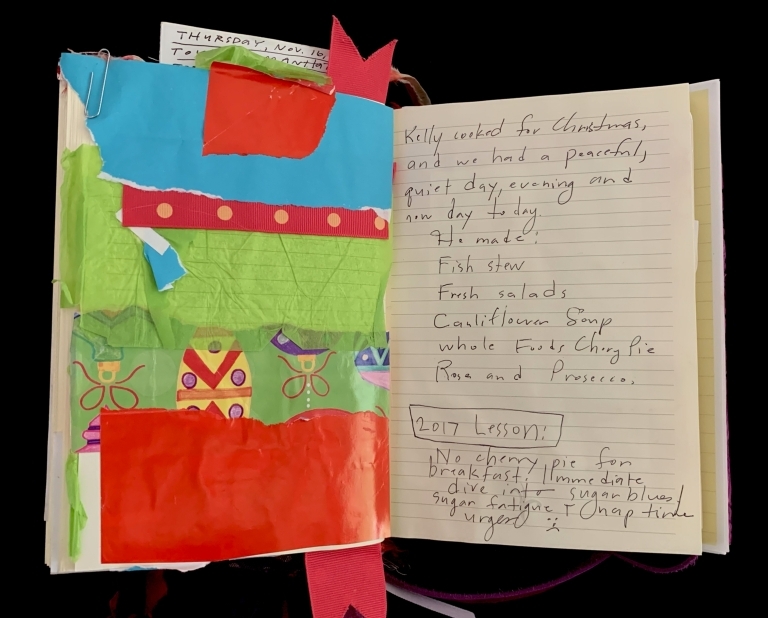 THURSDAY, NOV. 16,
Kelly cooked for Christmas,
and we had a peaceful,
quiet day, evening and
now day to day.
He made:
Fish stew
Fresh salads
Cauliflower Soup
whole Foods Cherry Pie
Rose and Prosecco.
2017 Lesson!
No cherry pie for
breakfast! Immediate
dive into sugar blues!
sugar fatigue + nap time
urges